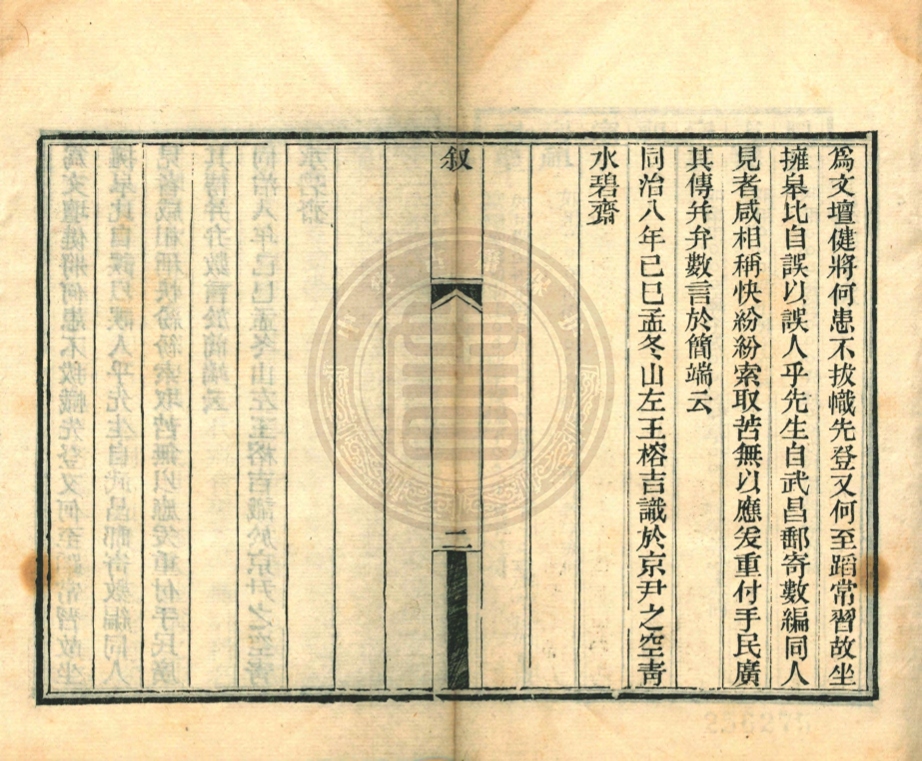 爲文壇健將何患不拔幟先登又何至蹈常習故坐
擁皋比自誤以誤人乎先生自武昌郵寄數編同人
見者咸相稱快紛紛索取苦無以應爰重付手民廣
其傳并弁數言於簡端云
同治八年己巳孟冬山左王榕吉識於京尹之空靑
水碧齋
叙
二